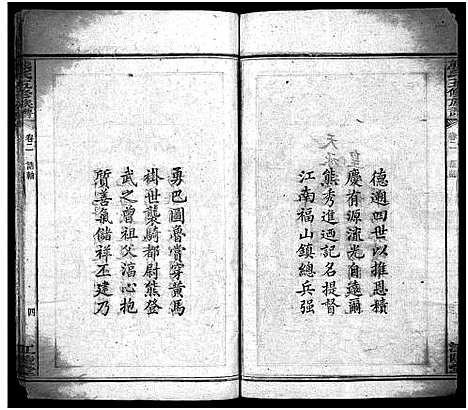 奉天
皇
德邇四世以推恩積
慶有源流光自遠爾
熊秀進迺記名提督
江南福山鎮總兵强
勇巴圖魯賞穿黃馬
褂世襲騎都尉熊登
武之曾祖父溫心抱
質善氣儲祥丕建乃
卷二
誥軸
四
卷二